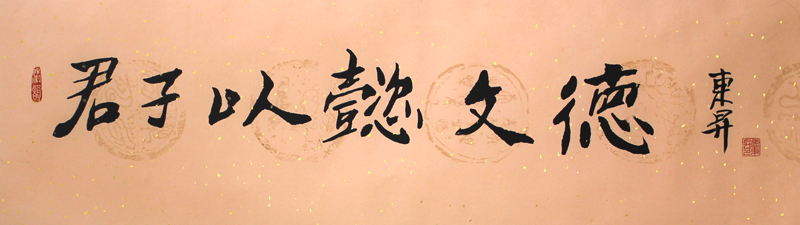 君子以懿文德
東昇